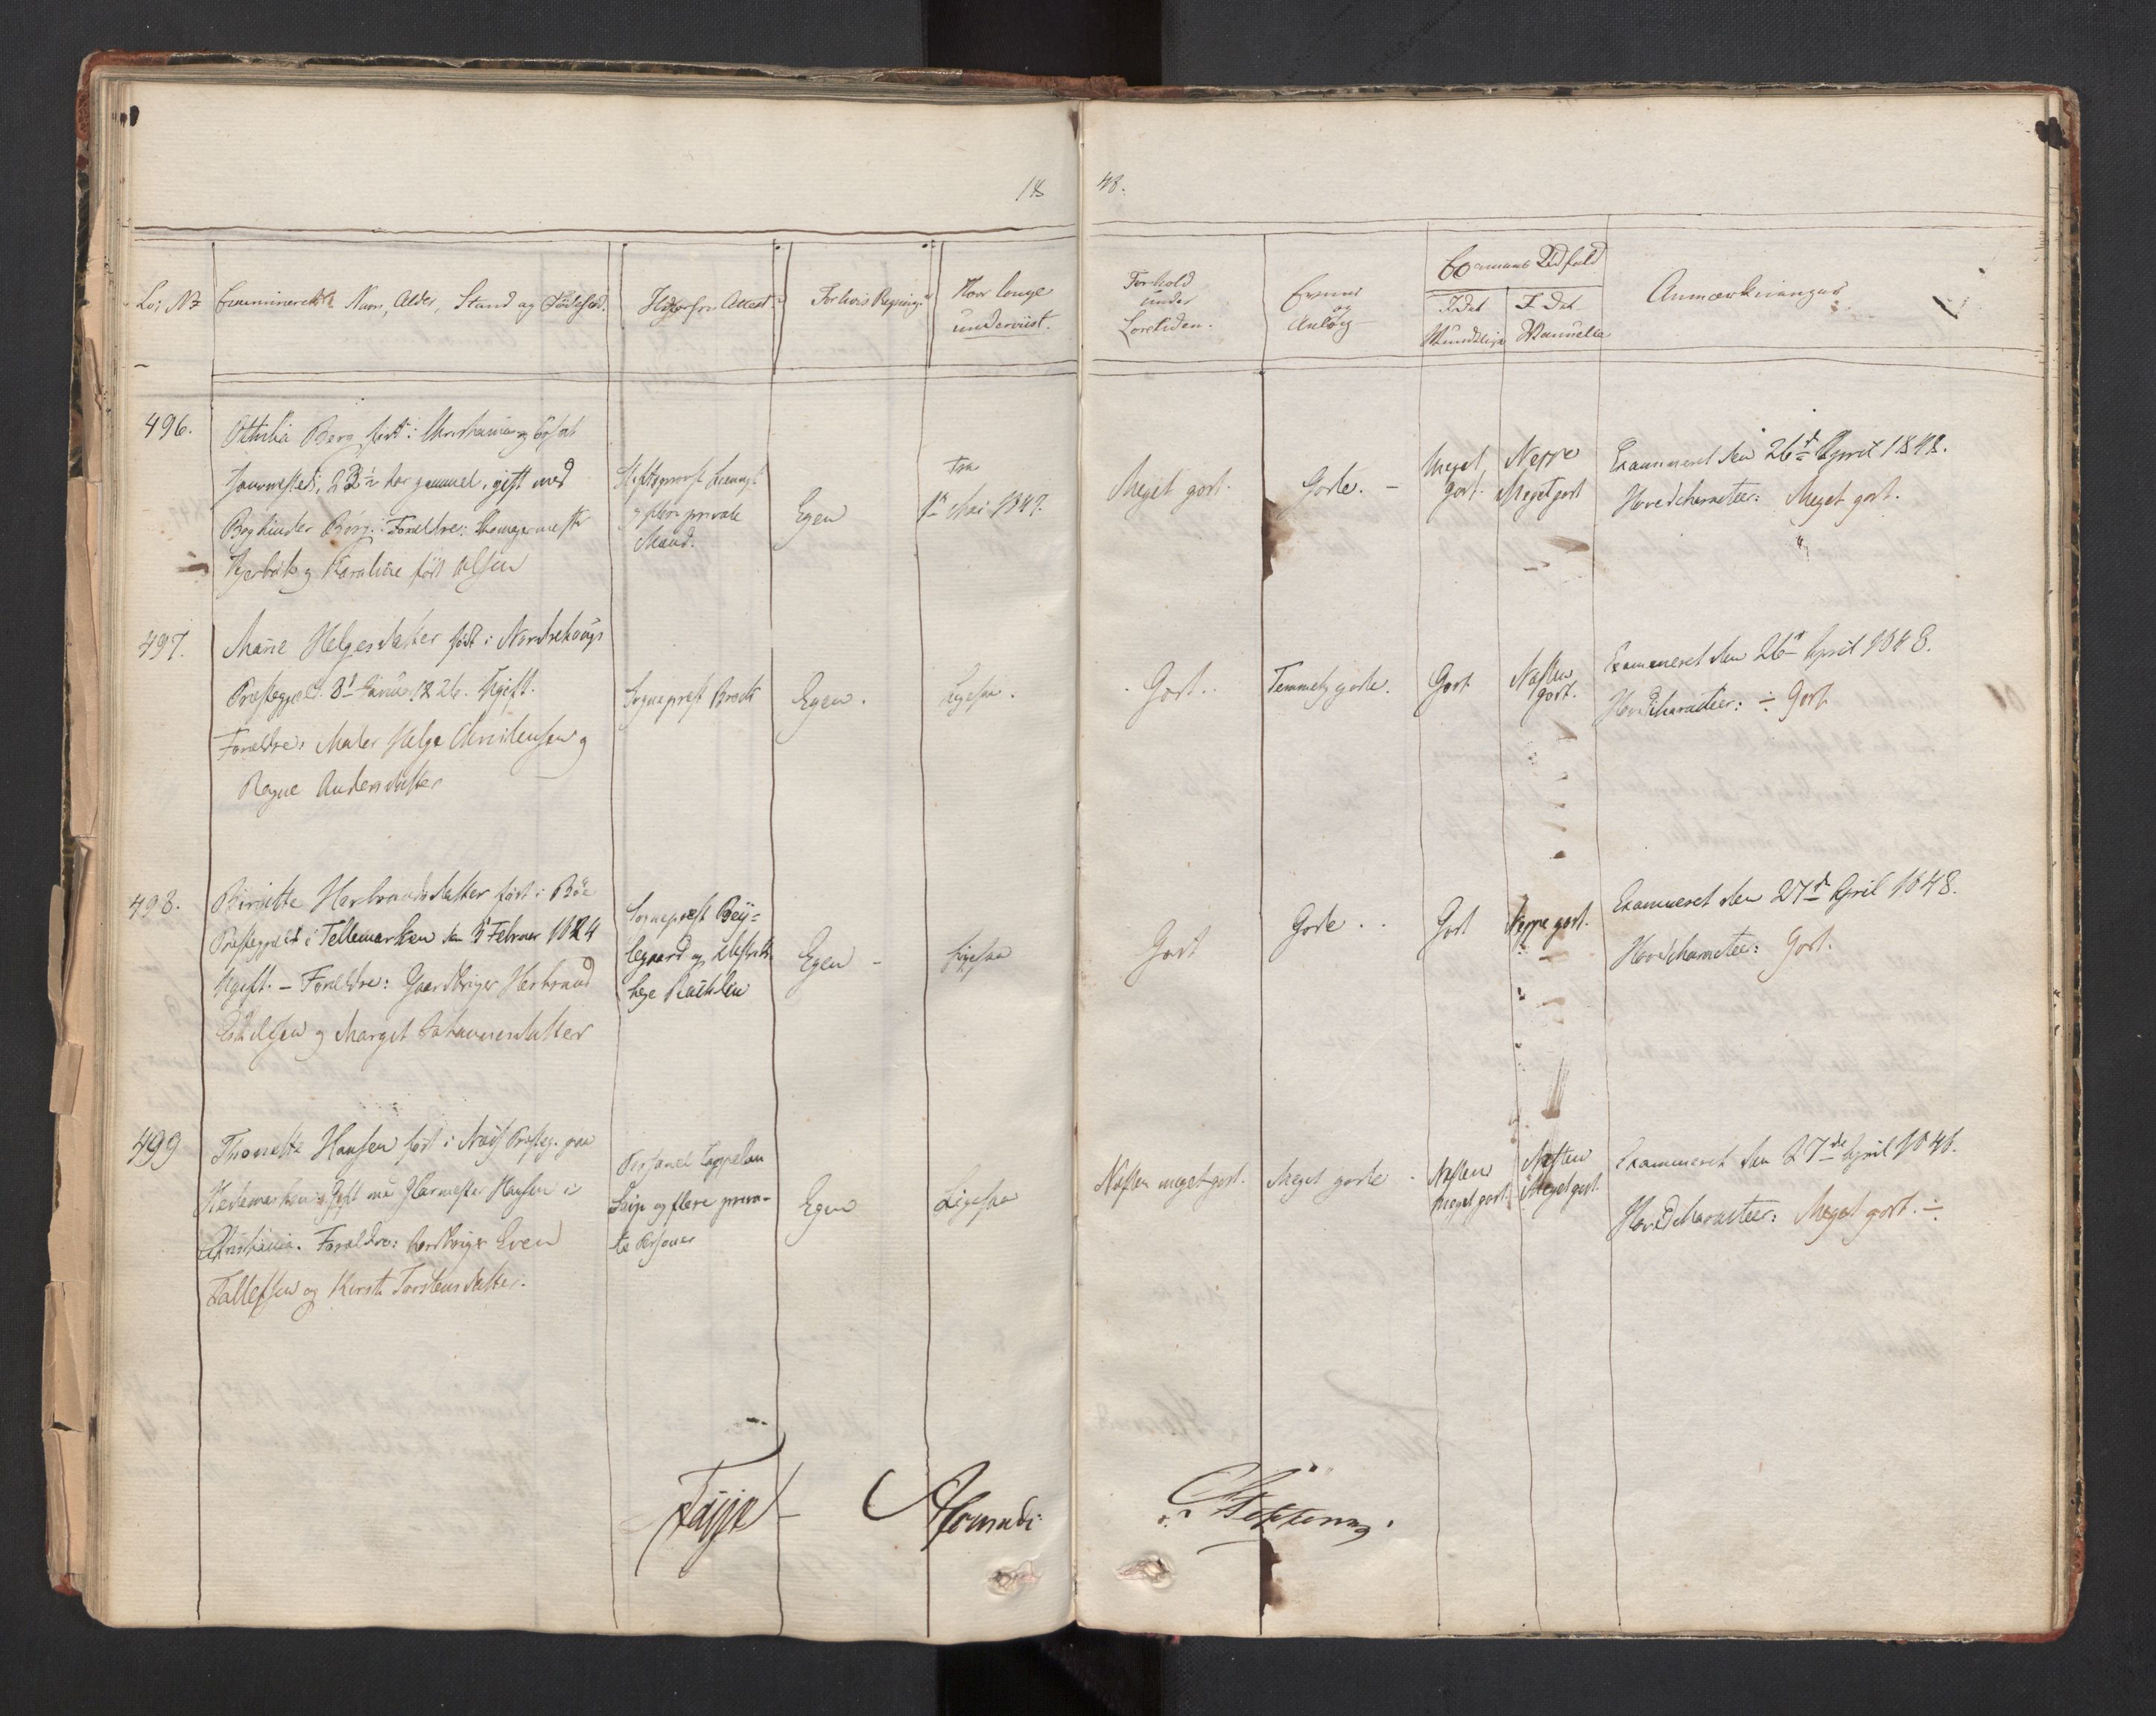 18
48.
Lø: No
Examineredes Navn, Alder, Stand og Fødested.
Hvorfra Attest.
For hvis Regning.
Hvor længe
underviist.
Forhold
under
Læretiden.
Evner
og
Anlæg
Examens Udfald
I det
Mundtlige
I Det
Manuelle
Anmærkninger
496.
Othilia Berg født i Christiania og bosat
sammesteds, 23½ Aar gammel, gift med
Bogbinder Berg. Forældre:
og Karoline født Olsen
Stiftsprovst
og flere private
Mænd.
Egen
fra
1ste Mai 1847.
Meget godt.
Gode. -
Meget
godt.
Neppe
Meget godt
Examineret den 26de April 1848.
Hovedcharacteer: Meget godt.
497.
Marie Helgesdatter født i Norderhougs
Præstegjeld. 8de Januar 1826. Ugift.
Forældre: Maler Helge Christensen og
Ragne Andersdatter
Sognepræst Brock
Egen.
Ligesaa.
Godt.
Temmelig gode.
Godt
Næsten
godt.
Examineret den 26de April 1848.
Hovedcharacteer: ÷ Godt
498.
Birgitte Herbrandsdatter født i Böe
Præstegjeld i Tellemarken den 5 Februar 1824
Ugift. - Forældre: Gaardbruger Herbrand
og Margit Johannesdatter
Sognepræst Bey-
legaard og Distrikts-
læge
Egen -
Ligesaa
Godt
Gode.
Godt
Neppe godt.
Examineret den 27de April 1848.
Hovedcharacteer: Godt.
499
Thonette Hansen født i Næs Præsteg. paa
Hedemarken. Gift med Glarmester Hansen i
Christiania. Forældre: Gaardbruger Even
Tollefsen og Kersti Torstensdatter.
Personel Cappelan
og flere priva-
te Personer
Egen
Ligesaa
Næsten meget godt.
Meget gode
Næsten
meget godt.
Næsten
Meget godt.
Examineret den 27de April 1848.
Hovedcharacteer: Meget godt. ÷